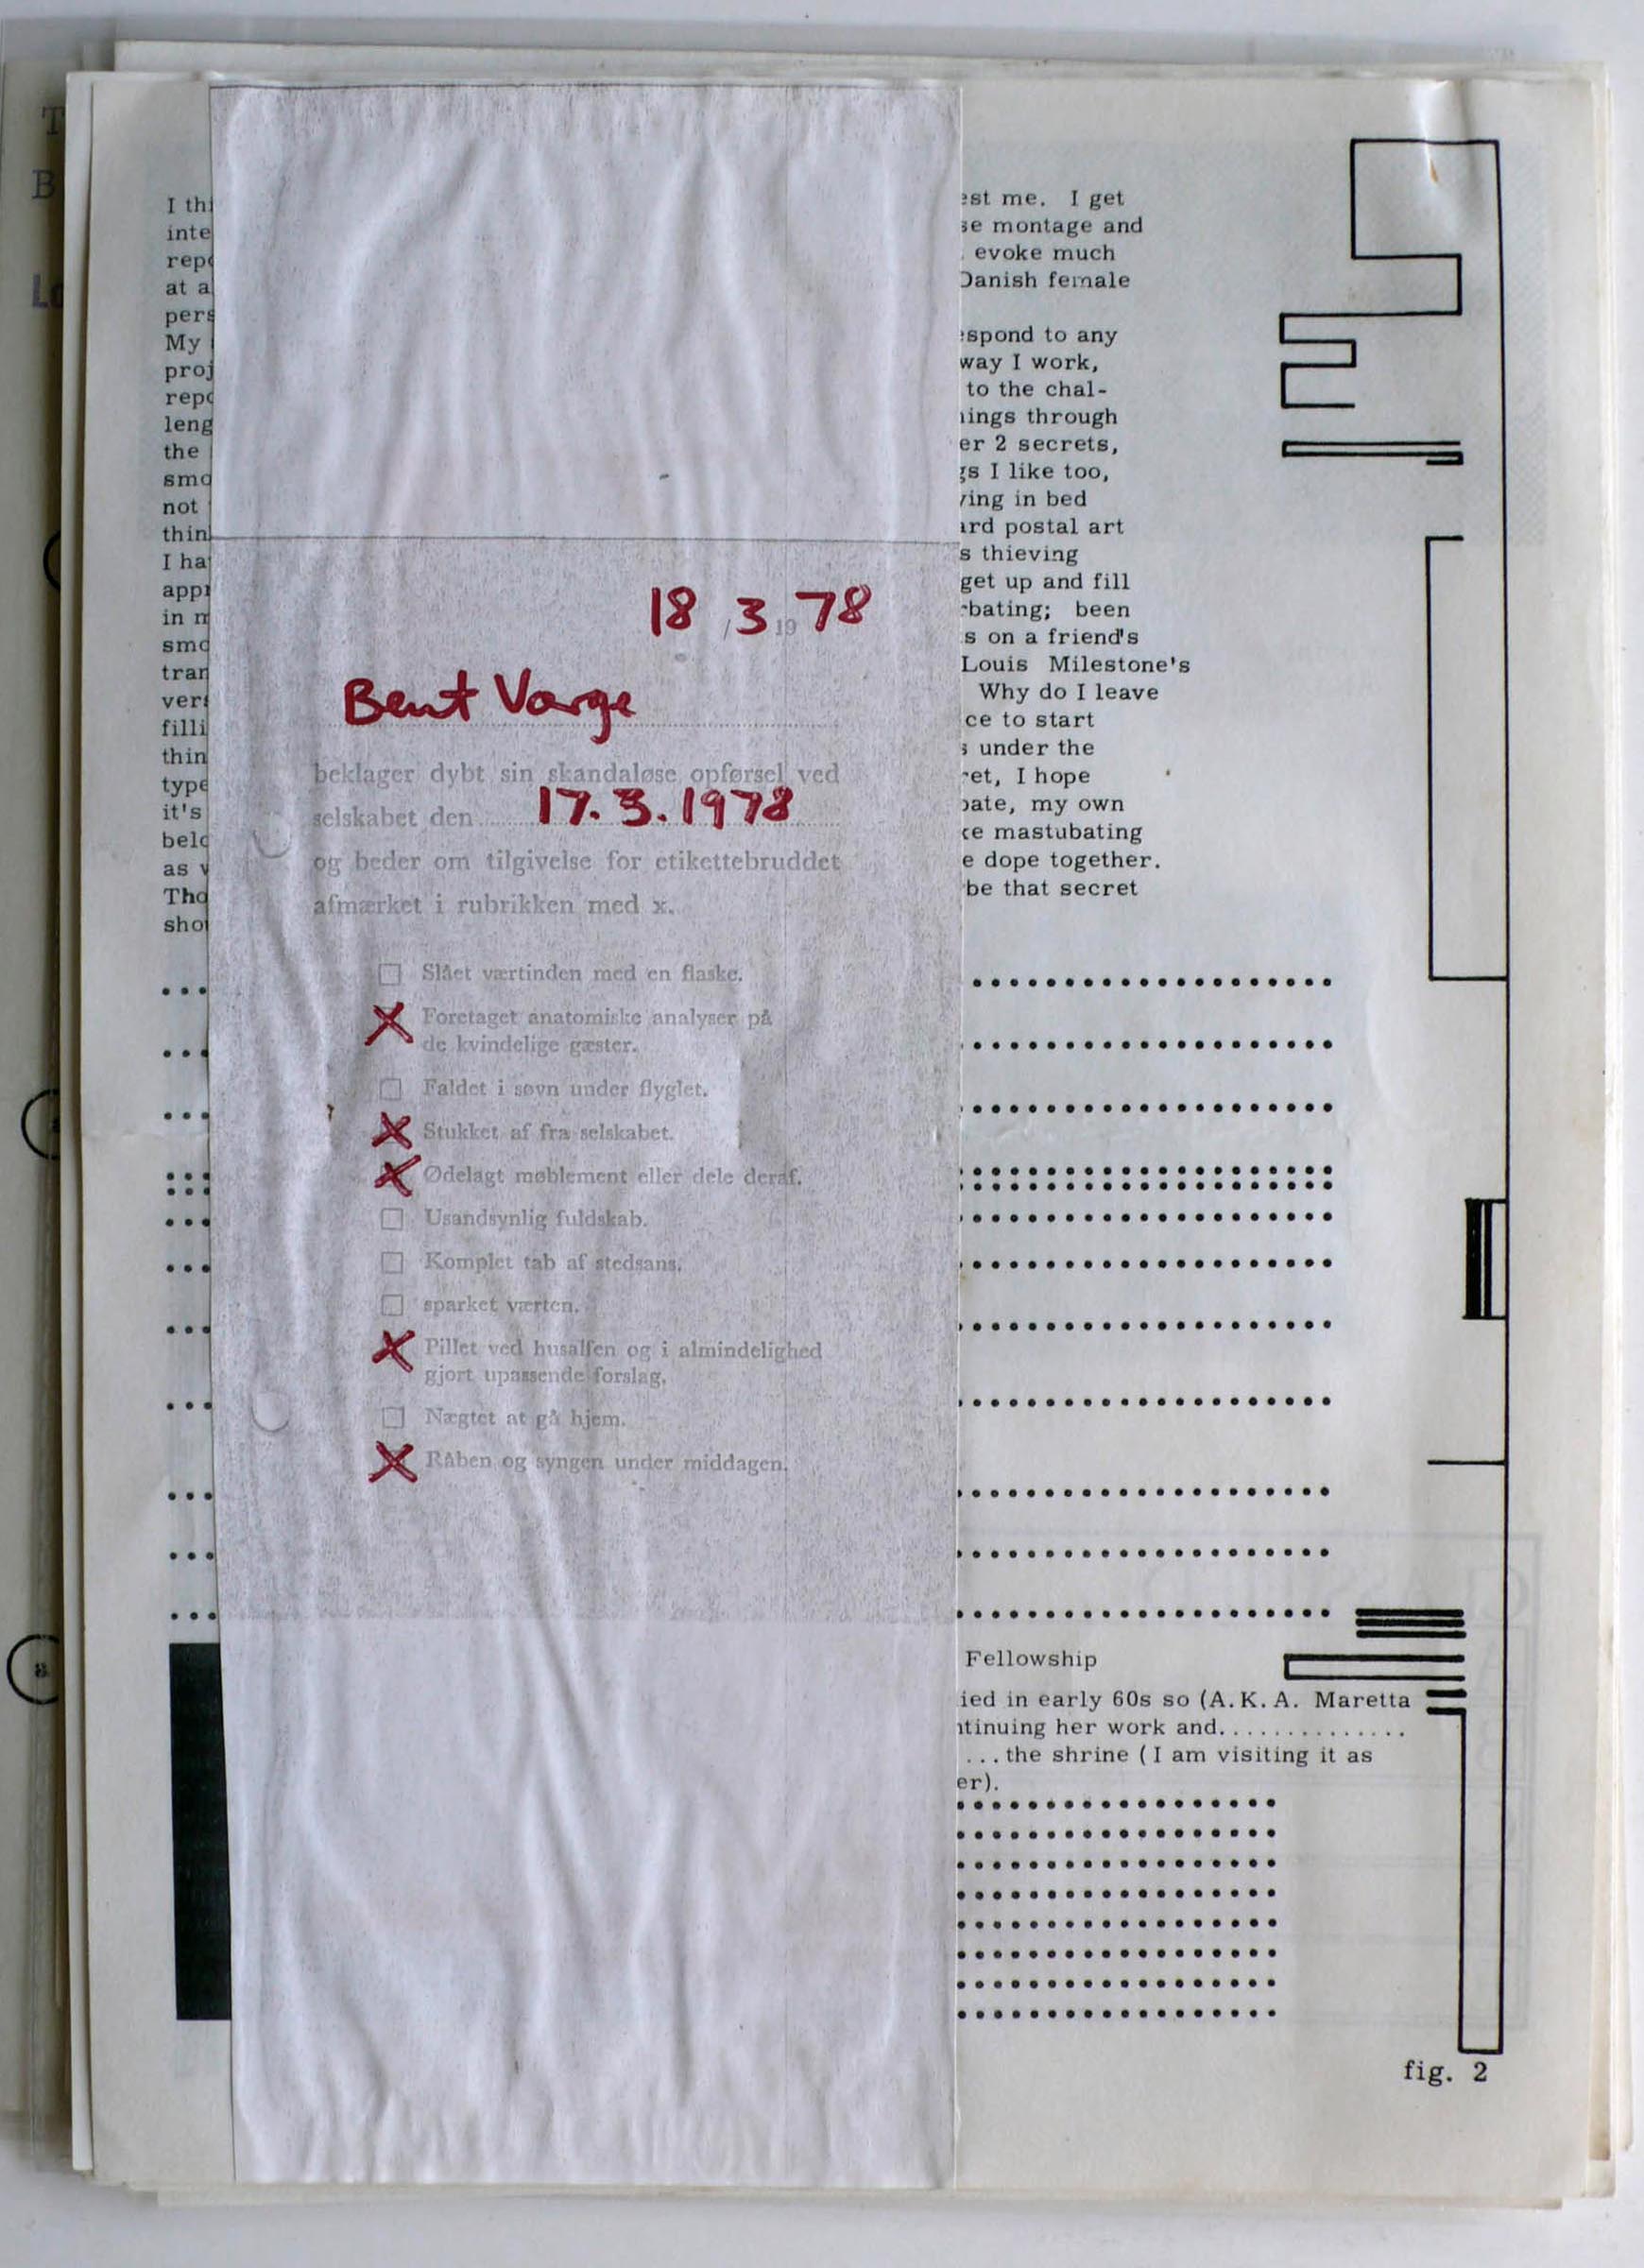 T
B
I thi
inte
repo
at a
pers
My
proj
repo
leng
the
smo
not
thin
I ha
appr
in m
smo
tran
vers
filli
thin
type
it's
belo
as v
Tho
shou
18 / 3 19 78
Bent Varge
beklager dybt sin skandaløse opførsel ved
selskabet den 17.3.1978
og beder om tilgivelse for etikettebruddet
afmærket i rubrikken med x.
Slået værtinden med en flaske.
X Foretaget anatomiske analyser på
de kvindelige gæster.
Faldet i søvn under flyglet.
X Stukket af fra selskabet.
X Ødelagt møblement eller dele deraf.
Usandsynlig fuldskab.
Komplet tab af stedsans.
sparket værten.
X Pillet ved husalfen og i almindelighed
gjort upassende forslag.
Nægtet at gå hjem.
X Råben og syngen under middagen.
est me. I get
se montage and
evoke much
Danish female
espond to any
way I work,
to the chal-
nings through
er 2 secrets,
gs I like too,
ying in bed
ard postal art
s thieving
get up and fill
rbating; been
s on a friend's
Louis Milestone's
Why do I leave
ce to start
s under the
ret, I hope
bate, my own
ke mastubating
e dope together.
be that secret
Fellowship
ied in early 60s so (A.K.A. Maretta
ntinuing her work and..............
...the shrine (I am visiting it as
er).
fig. 2